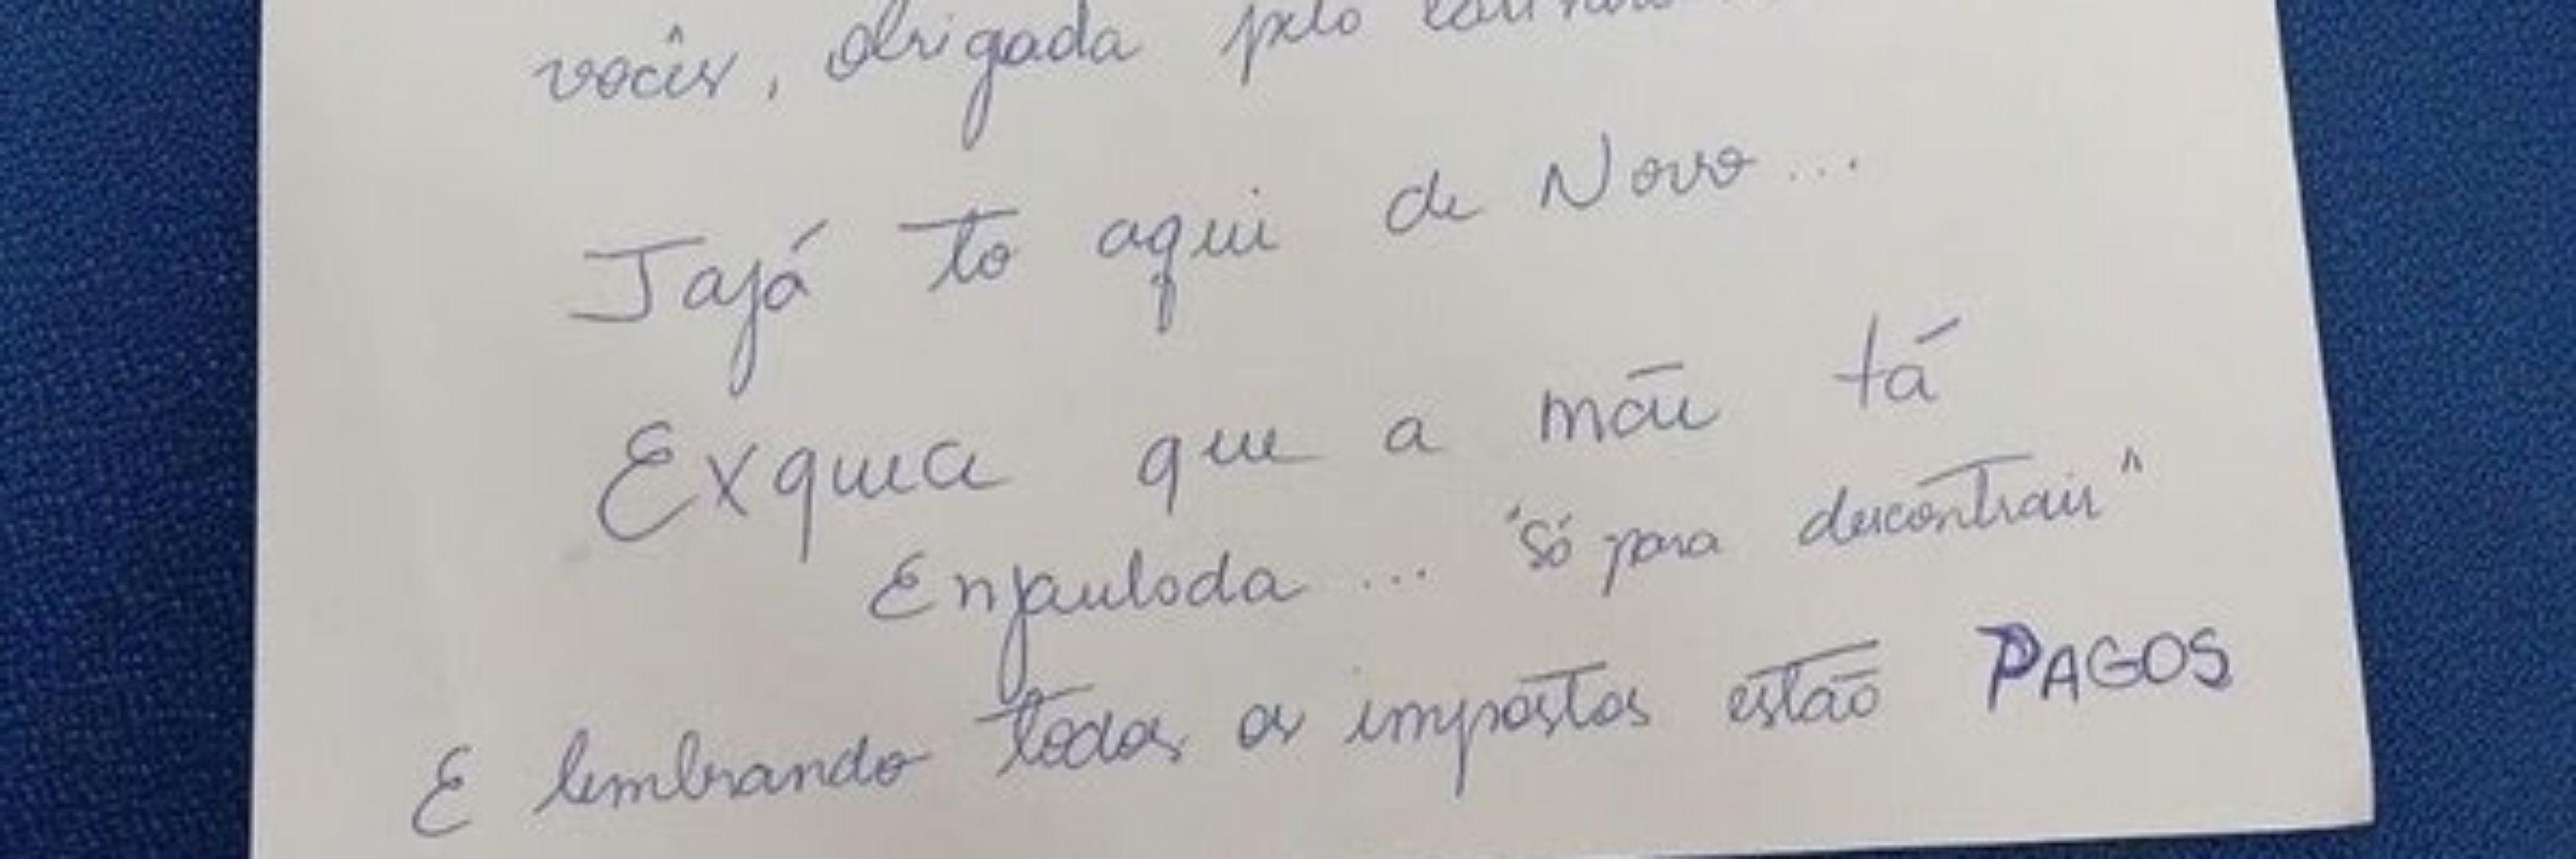 vocês, obrigada pelo carinho
Jajá to aqui de Novo...
Exquece que a mãe tá
Enjaulada... "só para descontrair"
E lembrando todos os impostos estão PAGOS